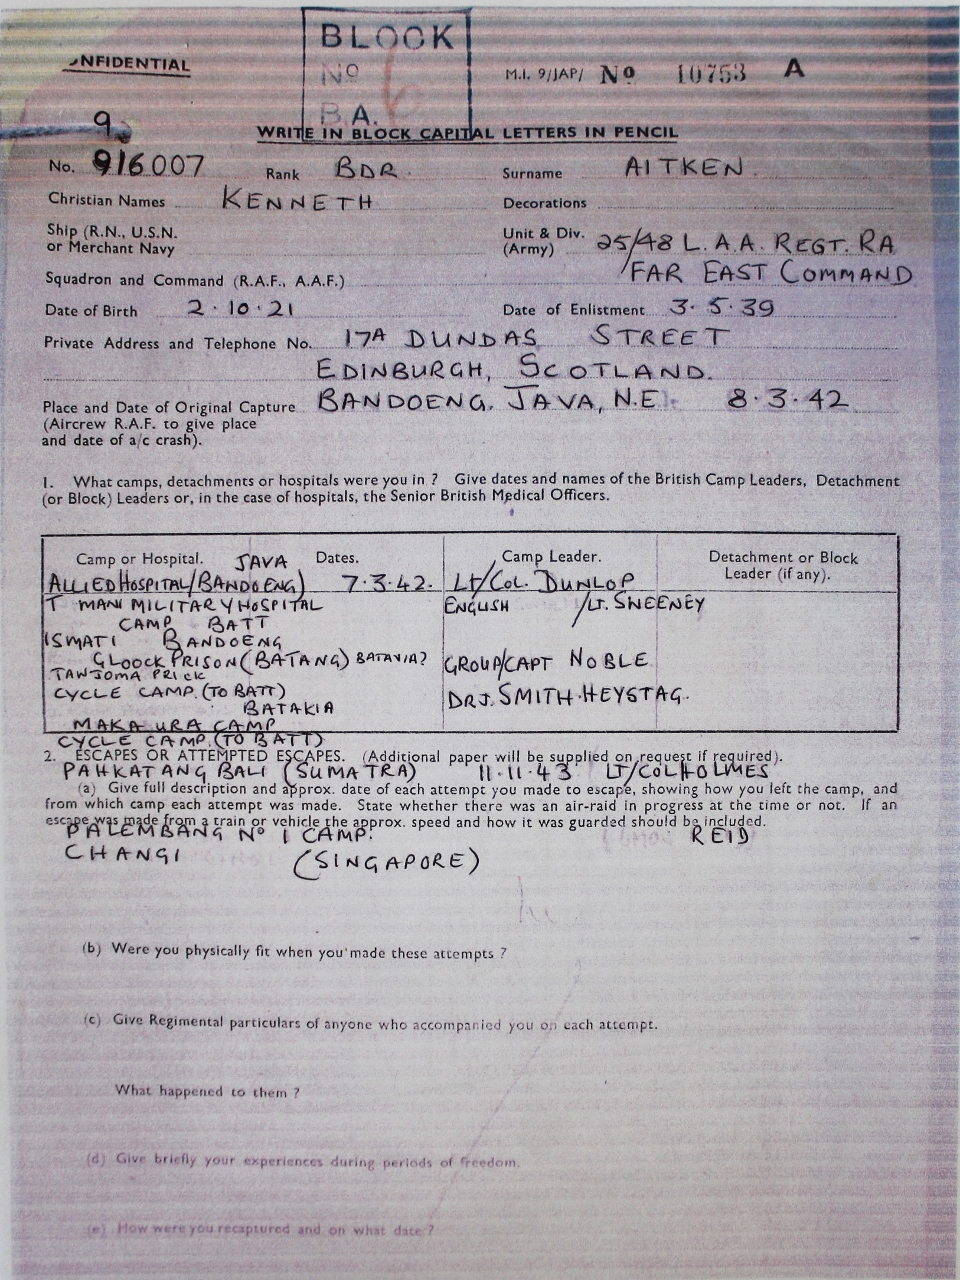 BLOCK
No
B.A.
NFIDENTIAL
M.I. 9/JAP/ No 10753 A
9
WRITE IN BLOCK CAPITAL LETTERS IN PENCIL
No. 916007 Rank BDR. Surname AITKEN.
Christian Names KENNETH Decorations
Ship (R.N., U.S.N. or Merchant Navy
Unit & Div. (Army) 25/48 L.A.A. REGT. RA
/FAR EAST COMMAND
Squadron and Command (R.A.F., A.A.F.)
Date of Birth 2·10·21 Date of Enlistment 3·5·39
Private Address and Telephone No. 17A DUNDAS STREET
EDINBURGH, SCOTLAND.
Place and Date of Original Capture BANDOENG. JAVA, N.E.I. 8·3·42
(Aircrew R.A.F. to give place
and date of a/c crash).
1. What camps, detachments or hospitals were you in ? Give dates and names of the British Camp Leaders, Detachment
(or Block) Leaders or, in the case of hospitals, the Senior British Medical Officers.
Camp or Hospital. JAVA Dates. Camp Leader. Detachment or Block
Leader (if any).
ALLIED HOSPITAL/(BANDOENG) 7·3·42. LT/COL. DUNLOP
T MANI MILITARY HOSPITAL ENGLISH /LT. SWEENEY
CAMP BATT
ISMATI BANDOENG
GLOOCK PRISON (BATANG) BATAVIA? GROUP/CAPT NOBLE
TAWJOMA PRICK
CYCLE CAMP. (TO BATT) DR J. SMITH·HEYSTAG.
BATAKIA
MAKA URA CAMP
CYCLE CAMP. (TO BATT)
2. ESCAPES OR ATTEMPTED ESCAPES. (Additional paper will be supplied on request if required).
PAHKATANG BALI (SUMATRA) 11·11·43 LT/COL HOLMES
(a) Give full description and approx. date of each attempt you made to escape, showing how you left the camp, and
from which camp each attempt was made. State whether there was an air-raid in progress at the time or not. If an
escape was made from a train or vehicle the approx. speed and how it was guarded should be included.
PALEMBANG No 1 CAMP. REID
CHANGI (SINGAPORE)
(b) Were you physically fit when you made these attempts ?
(c) Give Regimental particulars of anyone who accompanied you on each attempt.
What happened to them ?
(d) Give briefly your experiences during periods of freedom.
(e) How were you recaptured and on what date ?